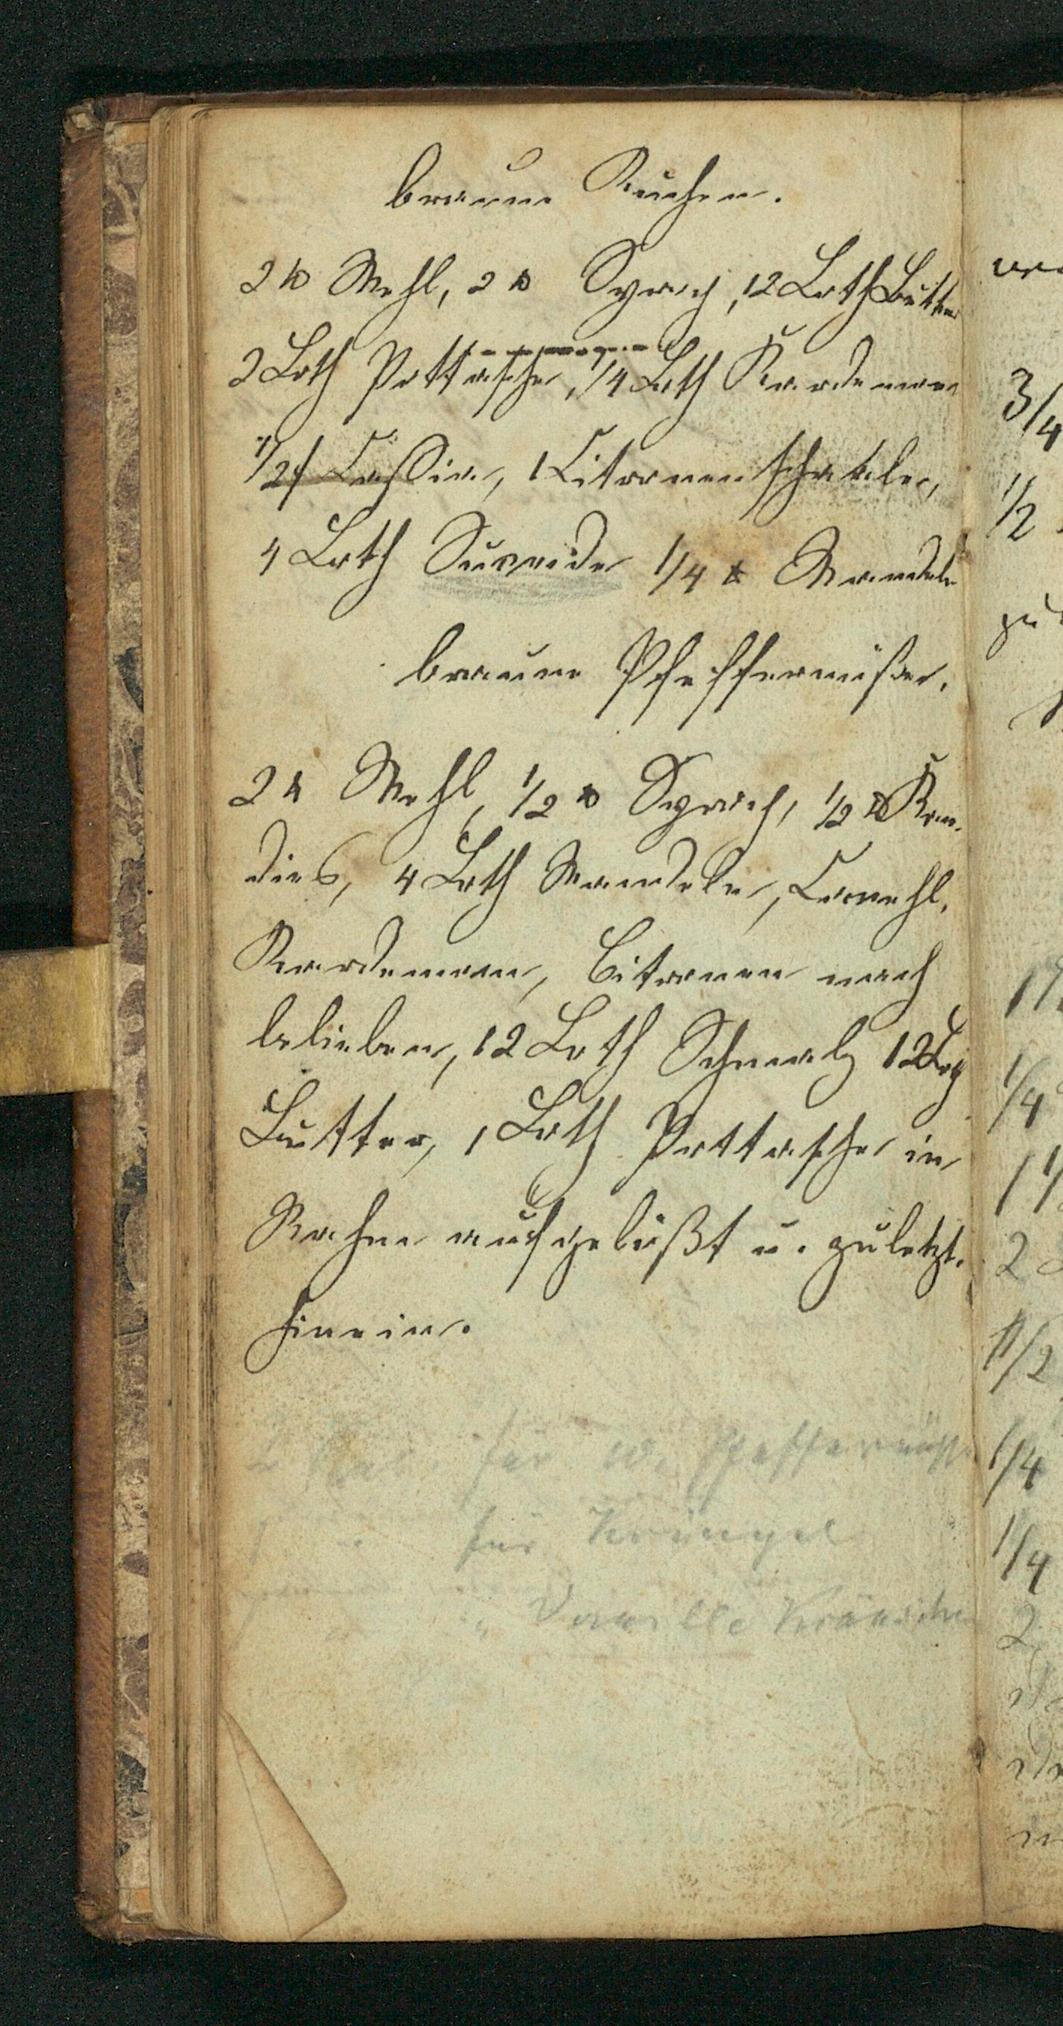 braune Kuchen.
2 ℔ Mehl, 2 ℔ Syrop, 12 Loth Butter
2 Loth Pottasche, 1/4 Loth Kardemom
1/2 Cassia, 1 Citronenschale,
4 Loth Succade 1/4 ℔ Mandeln
braune Pfeffernüße.
2 ℔ Mehl, 1/2 ℔ Syrop, 1/2 ℔ Kan-
dies, 4 Loth Mandeln, Canehl,
Kardemom, Citronen nach
belieben, 12 Loth Schmalz 12 Loth
Butter, 1 Loth Pottasche in
Rahm aufgelößt u. zuletzt
hinein.
für w. Pfeffernüsse
für Kringel
" Vanille Kränzchen
3/4
1/2
zu
1/4
2
1/2
1/4
1/4
2